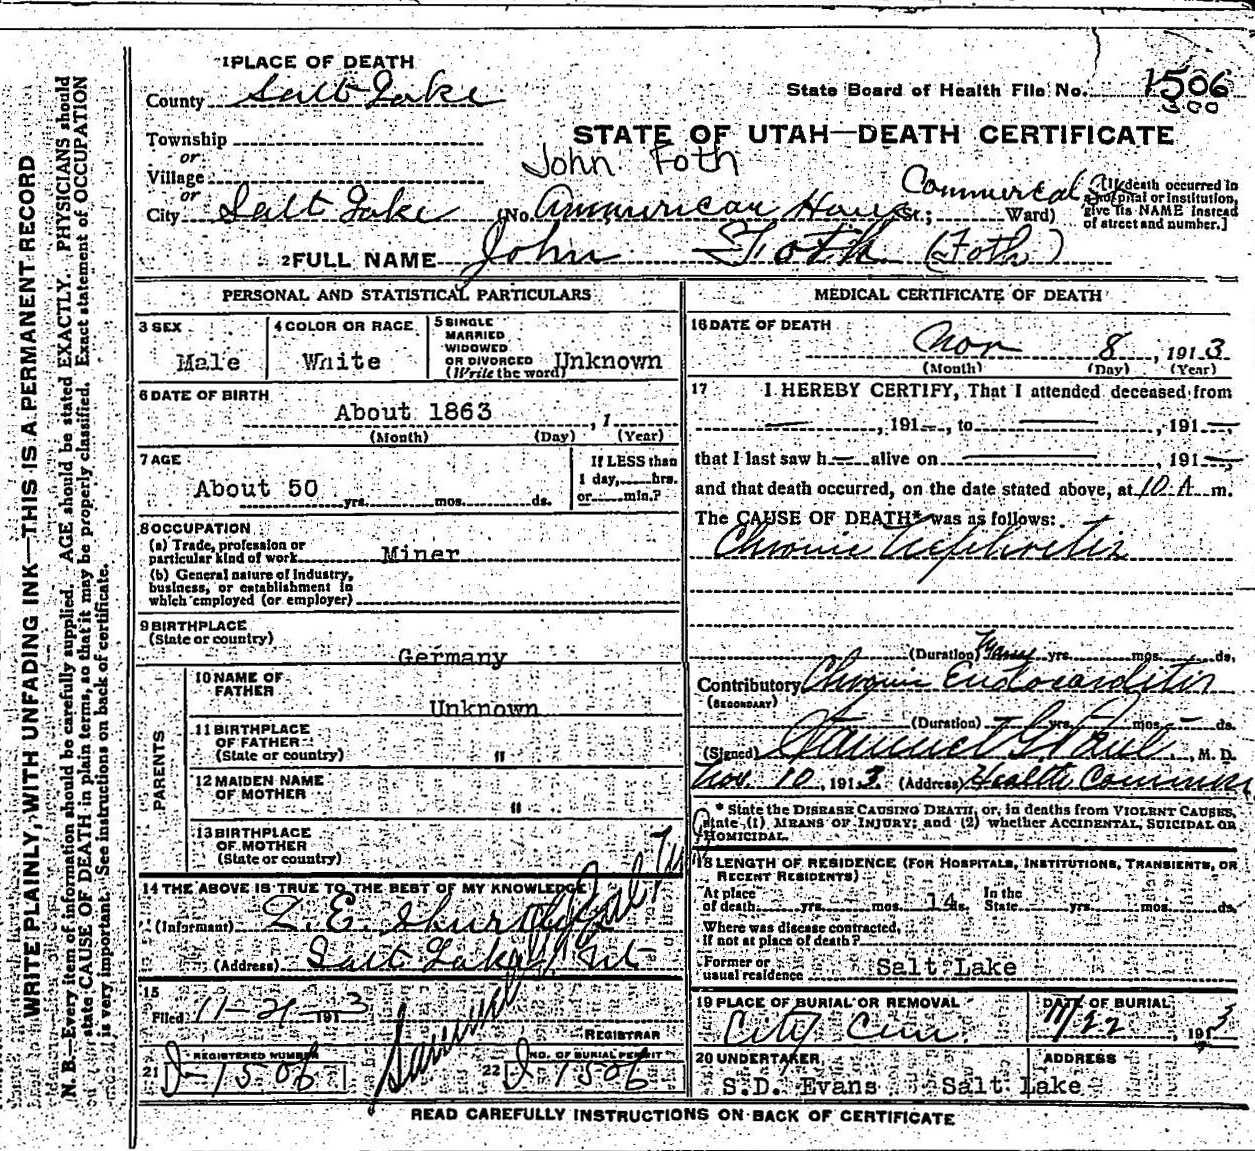 1 PLACE OF DEATH
County Salt Lake
State Board of Health File No. 1506
500
Township
or
Village
or
STATE OF UTAH—DEATH CERTIFICATE
John Foth
City Salt Lake (No. Ammerican House St.; Commercal Ward)
[If death occurred in a hospital or institution, give its NAME instead of street and number.]
2 FULL NAME John Foth (Foth)
PERSONAL AND STATISTICAL PARTICULARS
3 SEX
Male
4 COLOR OR RACE
White
5 SINGLE
MARRIED
WIDOWED
OR DIVORCED
(Write the word) Unknown
6 DATE OF BIRTH
About 1863 , 1
(Month) (Day) (Year)
7 AGE
About 50 yrs. mos. ds.
If LESS than
1 day, hrs.
or min.?
8 OCCUPATION
(a) Trade, profession or
particular kind of work Miner
(b) General nature of industry,
business, or establishment in
which employed (or employer)
9 BIRTHPLACE
(State or country)
Germany
PARENTS
10 NAME OF
FATHER
Unknown
11 BIRTHPLACE
OF FATHER
(State or country) "
12 MAIDEN NAME
OF MOTHER "
13 BIRTHPLACE
OF MOTHER
(State or country)
14 THE ABOVE IS TRUE TO THE BEST OF MY KNOWLEDGE
(Informant)
(Address) Salt Lake, Ut
15
Filed 11-21-1913
REGISTRAR
REGISTERED NUMBER
21 J-1506
NO. OF BURIAL PERMIT
22 J 1506
MEDICAL CERTIFICATE OF DEATH
16 DATE OF DEATH
Nov 8, 1913
(Month) (Day) (Year)
17 I HEREBY CERTIFY, That I attended deceased from
— , 191—, to — , 191—,
that I last saw h— alive on — , 191—,
and that death occurred, on the date stated above, at 10 A m.
The CAUSE OF DEATH* was as follows:
Chronic Nephritis
(Duration) Many yrs. mos. ds.
Contributory Chronic Endocarditis
(SECONDARY)
(Duration) yrs. mos. ds.
(Signed) Samuel G. Paul, M. D.
Nov. 10, 1913. (Address) Health Commr
* State the DISEASE CAUSING DEATH, or, in deaths from VIOLENT CAUSES,
state (1) MEANS OF INJURY; and (2) whether ACCIDENTAL, SUICIDAL OR
HOMICIDAL.
18 LENGTH OF RESIDENCE (FOR HOSPITALS, INSTITUTIONS, TRANSIENTS, OR
RECENT RESIDENTS)
At place
of death yrs. mos. 14 ds. In the State yrs. mos. ds.
Where was disease contracted,
if not at place of death?
Former or
usual residence Salt Lake
19 PLACE OF BURIAL OR REMOVAL
City Cem.
DATE OF BURIAL
11/22 1913
20 UNDERTAKER
S.D. Evans
ADDRESS
Salt Lake
READ CAREFULLY INSTRUCTIONS ON BACK OF CERTIFICATE
WRITE PLAINLY, WITH UNFADING INK—THIS IS A PERMANENT RECORD
N. B.—Every item of information should be carefully supplied. AGE should be stated EXACTLY. PHYSICIANS should
state CAUSE OF DEATH in plain terms, so that it may be properly classified. Exact statement of OCCUPATION
is very important. See instructions on back of certificate.